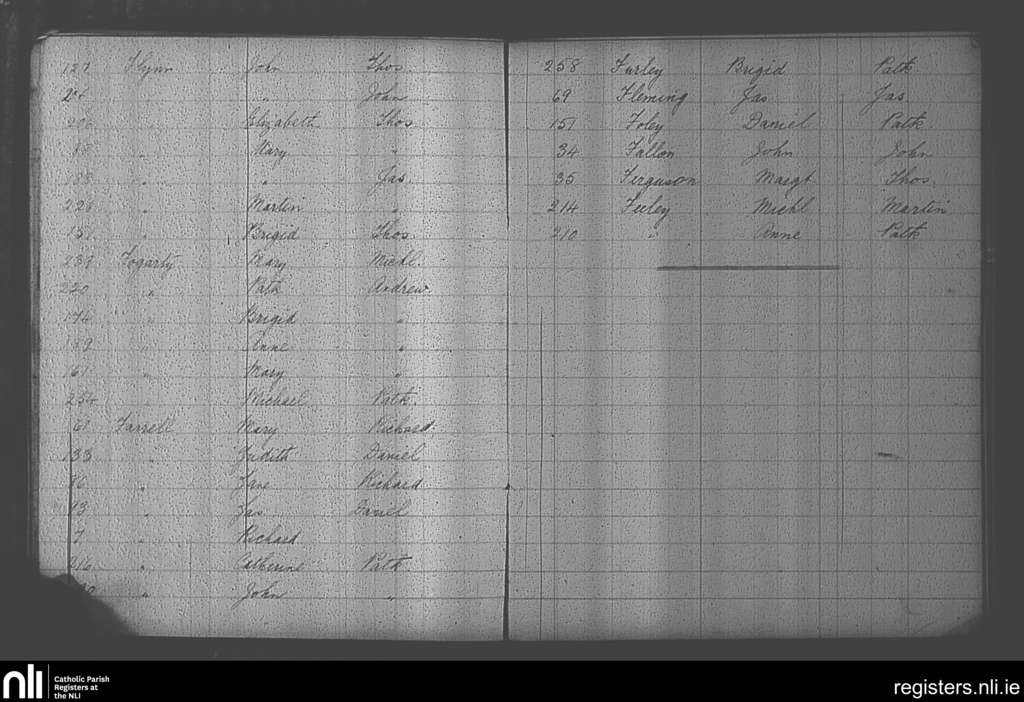 127 Flynn John Thos
" " John
" Elizabeth Thos
" Mary "
" " Jas
226 " Martin "
151 " Brigid Thos
239 Fogarty Mary Michl
220 " Path Andrew
174 " Brigid "
139 " Anne "
161 " Mary "
254 " Michael Path
61 Farrell Mary Richard
133 " Judith Daniel
" Jane Richard
" Jas Daniel
" Richard
216 " Catherine Path
" John "
258 Furley Brigid Path
69 Fleming Jas Jas
151 Foley Daniel Path
34 Fallon John John
35 Ferguson Margt Thos
214 Feeley Michl Martin
210 " Anne Path
nli Catholic Parish
Registers at
the NLI
registers.nli.ie